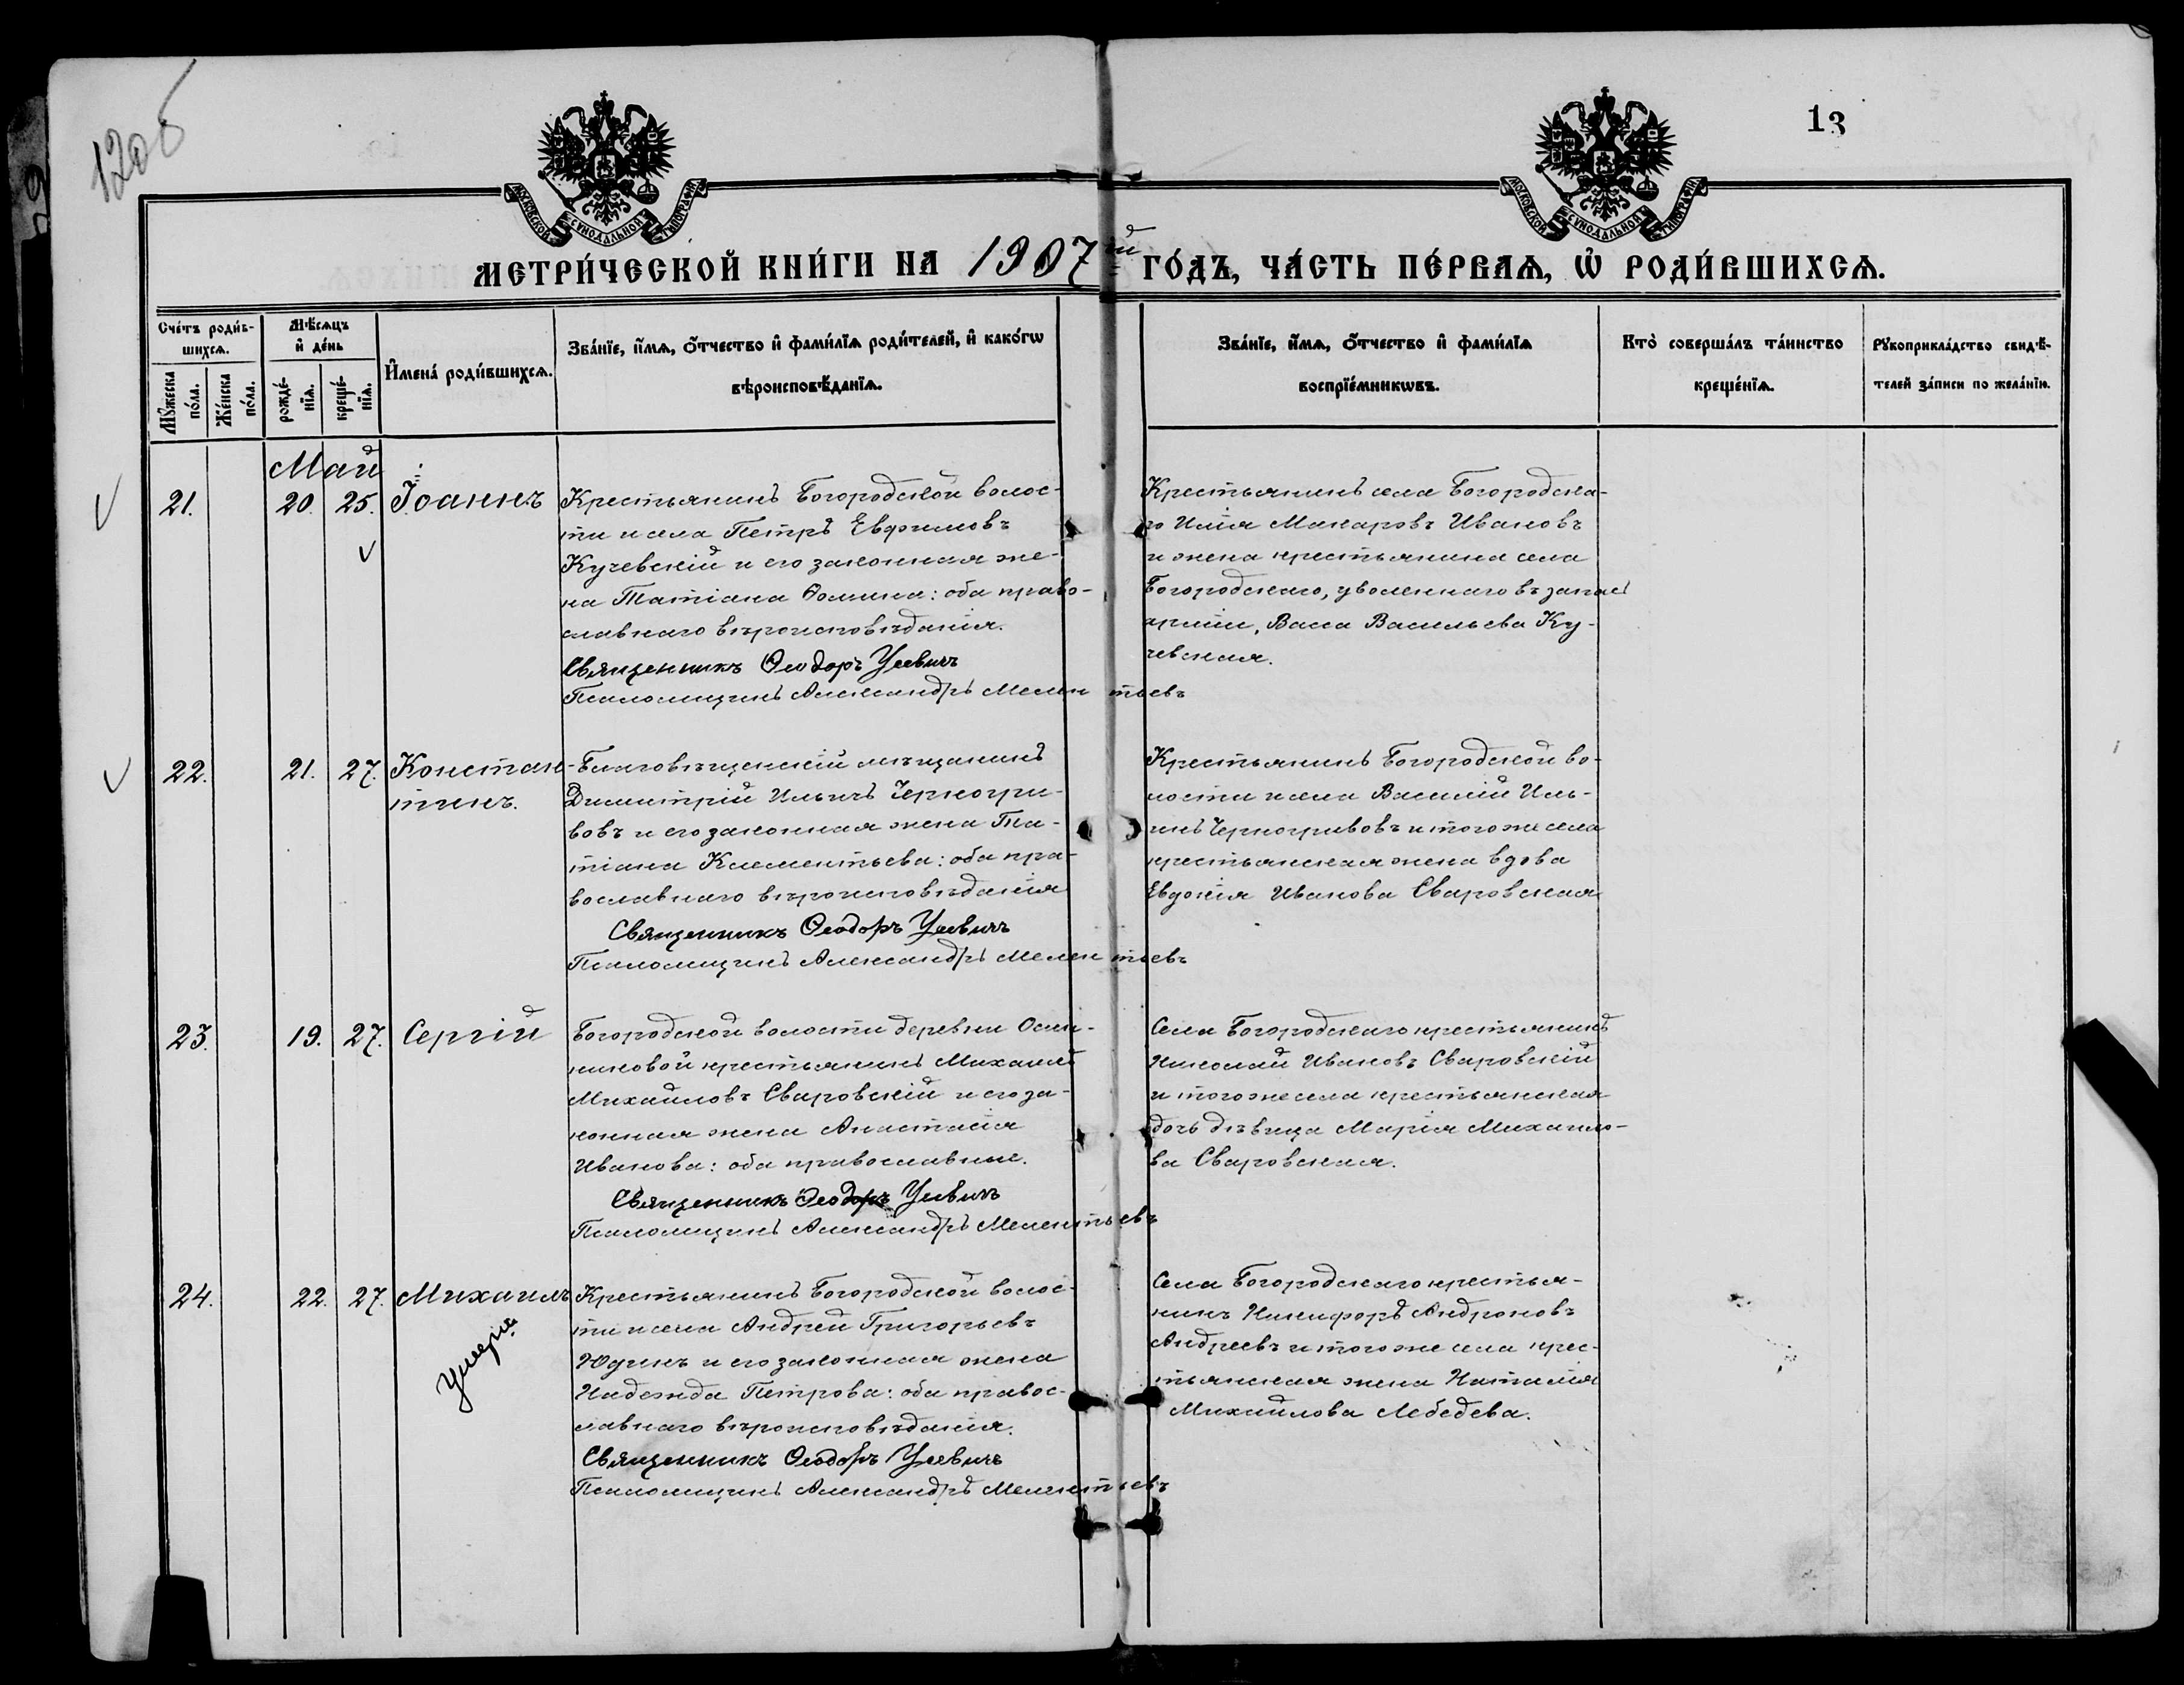 120б
13
МОСКОВСКОЙ СѴНОДАЛЬНОЙ ТИПОГРАФІИ
МОСКОВСКОЙ СѴНОДАЛЬНОЙ ТИПОГРАФІИ
МЕТРИ́ЧЕСКОЙ КНИ́ГИ НА 1907й ГО́ДЪ, ЧА́СТЬ ПЕ́РВАѦ, Ѡ҆ РОДИ́ВШИХСѦ.
Сче́тъ роди́в-
шихсѧ.
Мꙋ́жеска
по́ла.
Же́нска
по́ла.
Мѣ́сѧцъ
и҆ де́нь
рожде́-
нїѧ.
креще́-
нїѧ.
И҆мена̀ роди́вшихсѧ.
Зва́нїе, и҆́мѧ, ѻ҆́тчество и҆ фами́лїѧ роди́телей, и҆ како́гѡ
вѣроисповѣ́данїѧ.
Зва́нїе, и҆́мѧ, ѻ҆́тчество и҆ фами́лїѧ
воспрїе́мникѡвъ.
Кто̀ соверша́лъ та́инство
креще́нїѧ.
Рꙋкоприкла́дство свидѣ́-
телей за́писи по жела́нїю.
Май
21. 20. 25. Іоаннъ
Крестьянинъ Богородской волос-
ти и села Петръ Евфимовъ
Кучевскій и его законная же-
на Татіана Ѳомина: оба право-
славнаго вѣроисповѣданія.
Священникъ Ѳеодоръ Усевичъ
Псаломщикъ Александръ Мелентьевъ
Крестьянинъ села Богородска-
го Илія Макаровъ Ивановъ
и жена крестьянина села
Богородскаго, уволеннаго въ запасъ
арміи, Васса Васильева Ку-
чевская.
22. 21. 27. Констан-
тинъ.
Благовѣщенскій мѣщанинъ
Димитрій Ильичъ Черногри-
вовъ и его законная жена Та-
тіана Клементьева: оба пра-
вославнаго вѣроисповѣданія
Священникъ Ѳеодоръ Усевичъ
Псаломщикъ Александръ Мелентьевъ
Крестьянинъ Богородской во-
лости и села Василій Иль-
инъ Черногривовъ и того же села
крестьянская жена вдова
Евдокія Иванова Сваровская
23. 19. 27. Сергій
Богородской волости деревни Осин-
никовой крестьянинъ Михаилъ
Михайловъ Сваровскій и его за-
конная жена Анастасія
Иванова: оба православные.
Священникъ Ѳеодоръ Усевичъ
Псаломщикъ Александръ Мелентьевъ
Села Богородскаго крестьянинъ
Николай Ивановъ Сваровскій
и того же села крестьянская
дочь дѣвица Марія Михаило-
ва Сваровская.
24. 22. 27. Михаилъ
умеръ
Крестьянинъ Богородской волос-
ти и села Андрей Григорьевъ
Юдинъ и его законная жена
Надежда Петрова: оба правос-
лавнаго вѣроисповѣданія.
Священникъ Ѳеодоръ Усевичъ
Псаломщикъ Александръ Мелентьевъ
Села Богородскаго крестья-
нинъ Никифоръ Андроновъ
Андреевъ и того же села крес-
тьянская жена Наталія
Михайлова Лебедева.